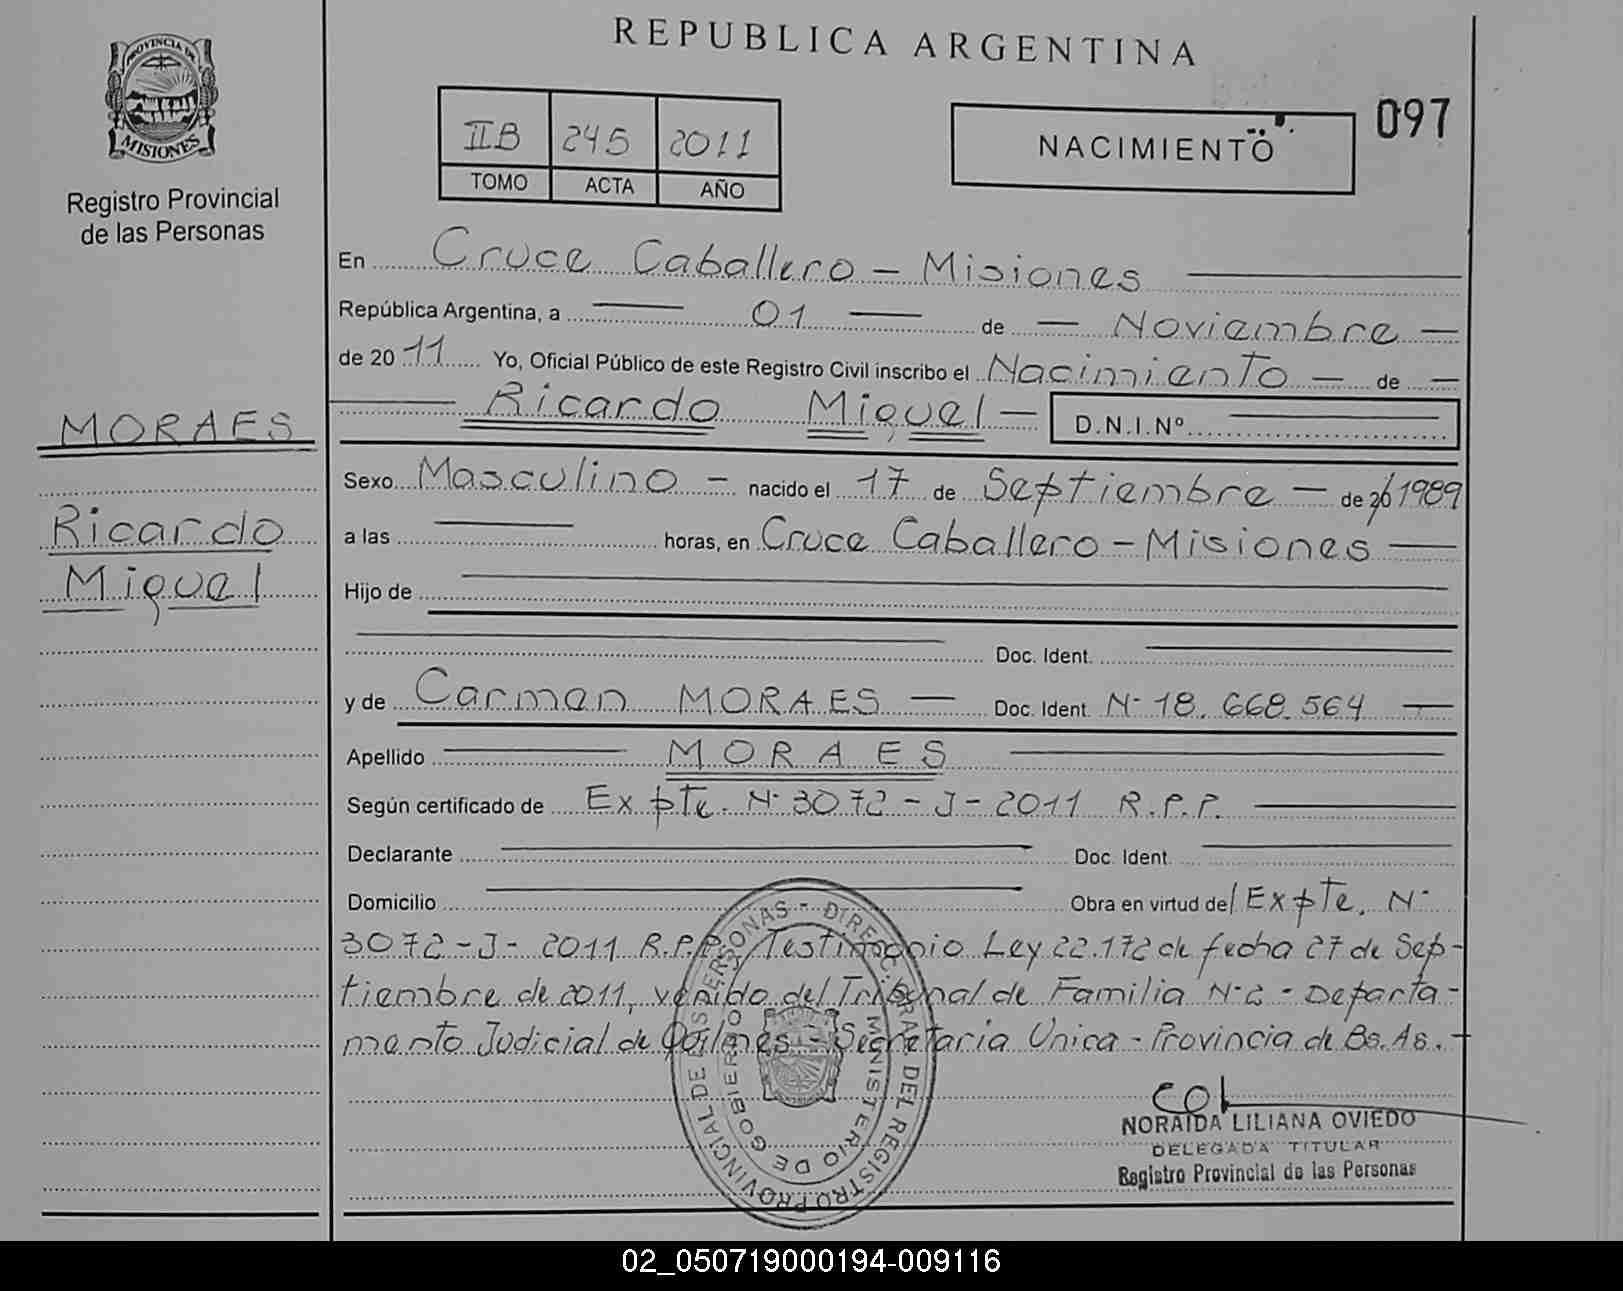 REPUBLICA ARGENTINA
PROVINCIA DE
MISIONES
Registro Provincial
de las Personas
IIB 245 2011
TOMO ACTA AÑO
NACIMIENTO
097
En Cruce Caballero - Misiones
República Argentina, a 01 de Noviembre
de 2011 Yo, Oficial Público de este Registro Civil inscribo el Nacimiento de
Ricardo Miguel D.N.I.Nº
MORAES
Ricardo
Miguel
Sexo Masculino nacido el 17 de Septiembre de 20 1989
a las horas, en Cruce Caballero - Misiones
Hijo de
Doc. Ident.
y de Carmen MORAES Doc. Ident. Nº 18.668.564
Apellido MORAES
Según certificado de Expte. Nº 3072-J-2011 R.P.P.
Declarante Doc. Ident.
Domicilio Obra en virtud del Expte. Nº
3072-J-2011 R.P.P., Testimonio Ley 22.172 de fecha 27 de Sep-
tiembre de 2011, venido del Tribunal de Familia Nº2 - Departa-
mento Judicial de Quilmes - Secretaría Unica - Provincia de Bs. As.
NORAIDA LILIANA OVIEDO
DELEGADA TITULAR
Registro Provincial de las Personas
DIREC. GRAL. DEL REGISTRO PROVINCIAL DE LAS PERSONAS
MINISTERIO DE GOBIERNO
02_050719000194-009116